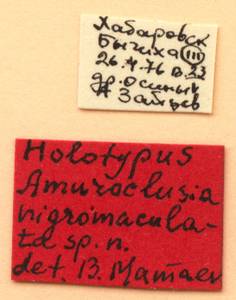 Хабаровск
Бычиха (III)
26.4.76 в.33
др. осиный
А Зайцев
Holotypus
Amuroclusia
nigromacula-
ta sp. n.
det. B. Mamaev